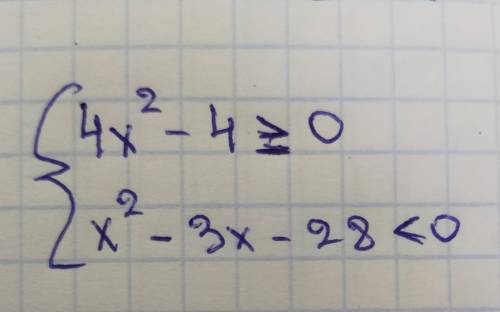 4x² - 4 ≥ 0
x² - 3x - 28 < 0